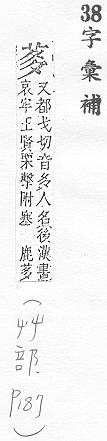 38字彙補
茤
又都戈切音多人名後漢書
哀牢王賢栗擊附塞 鹿茤
(艸部 P187)